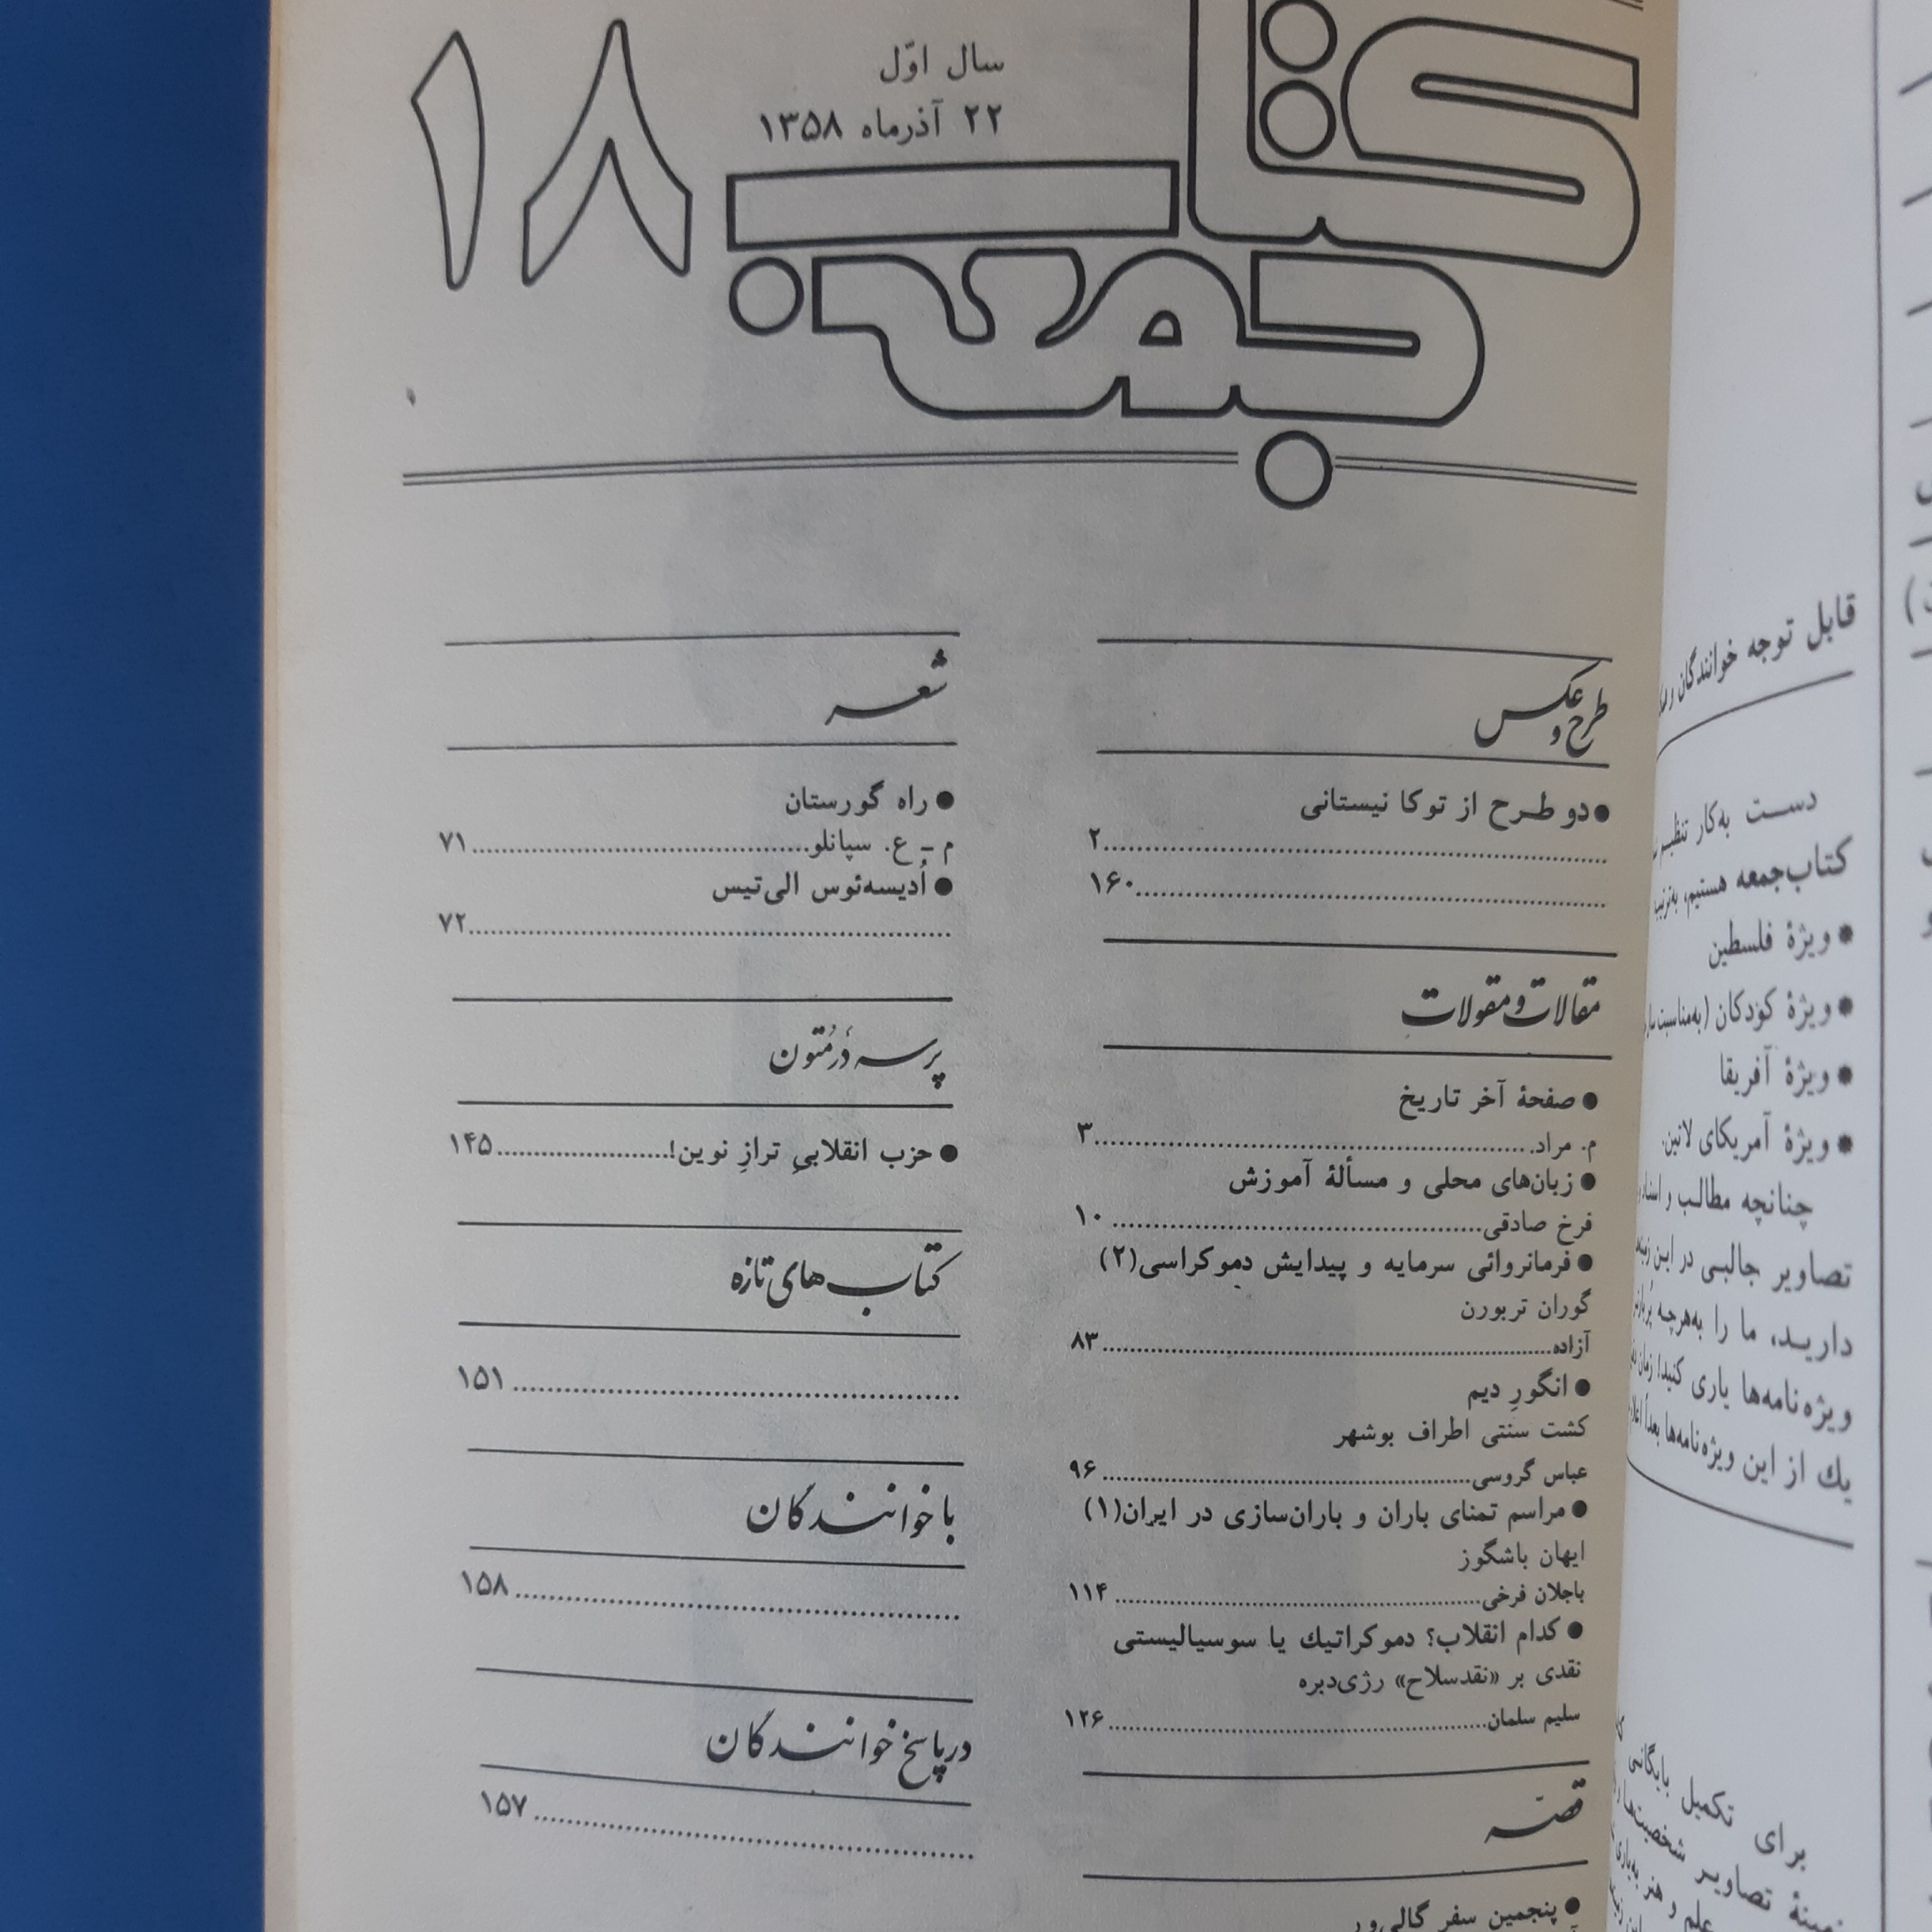 کتاب
جمعه
۱۸
سال اوّل
۲۲ آذرماه ۱۳۵۸
طرح و عکس
● دو طرح از توکا نیستانی
۲
۱۶۰
مقالات و مقولات
● صفحۀ آخر تاریخ
م. مراد ۳
● زبان‌های محلی و مسألۀ آموزش
فرخ صادقی ۱۰
● فرمانروائی سرمایه و پیدایش دموکراسی(۲)
گوران تربورن
آزاده ۸۳
● انگورِ دیم
کشت سنتی اطراف بوشهر
عباس گروسی ۹۶
● مراسم تمنای باران و باران‌سازی در ایران(۱)
ایهان باشگوز
باجلان فرخی ۱۱۴
● کدام انقلاب؟ دموکراتیك یا سوسیالیستی
نقدی بر «نقدسلاح» رژی‌دبره
سلیم سلمان ۱۲۶
قصّه
● پنجمین سفر گالی‌ور
شعر
● راه گورستان
م – ع. سپانلو ۷۱
● اُدیسه‌ئوس الی‌تیس
۷۲
پرسه دَر مُتون
● حزب انقلابیِ ترازِ نوین! ۱۴۵
کتاب‌های تازه
۱۵۱
با خوانندگان
۱۵۸
در پاسخ خوانندگان
۱۵۷
قابل توجه خوانندگان و
دست به‌کار تنظیم
کتاب‌جمعه هستیم، به‌ترتیب
● ویژۀ فلسطین
● ویژۀ کودکان (به‌مناسبت سال
● ویژۀ آفریقا
● ویژۀ آمریکای لاتین.
چنانچه مطالب و اسناد
تصاویر جالبی در این زمینه
دارید، ما را به‌هرچه پُربارتر
ویژه‌نامه‌ها یاری کنید! زمان
یك از این ویژه‌نامه‌ها بعداً
برای تکمیل بایگانی
تصاویر شخصیت‌ها
علم و هنر به‌یاری